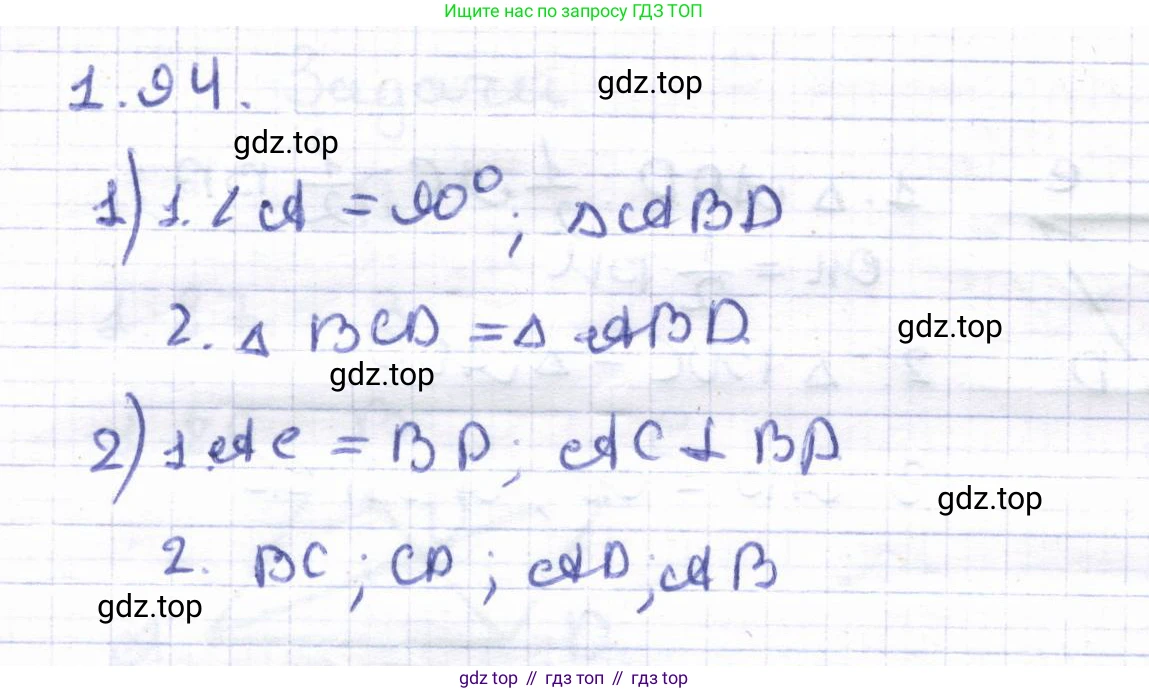 Ищите нас по запросу ГДЗ ТОП
1.94.
gdz.top
gdz.top
1) 1. ∠A = 90°; ΔABD
2. Δ BCD = Δ ABD
gdz.top
gdz.top
2) 1. AC = BD; AC ⊥ BD
gdz.top
2. BC; CD; AD; AB
gdz.top
gdz.top // гдз топ // гдз top